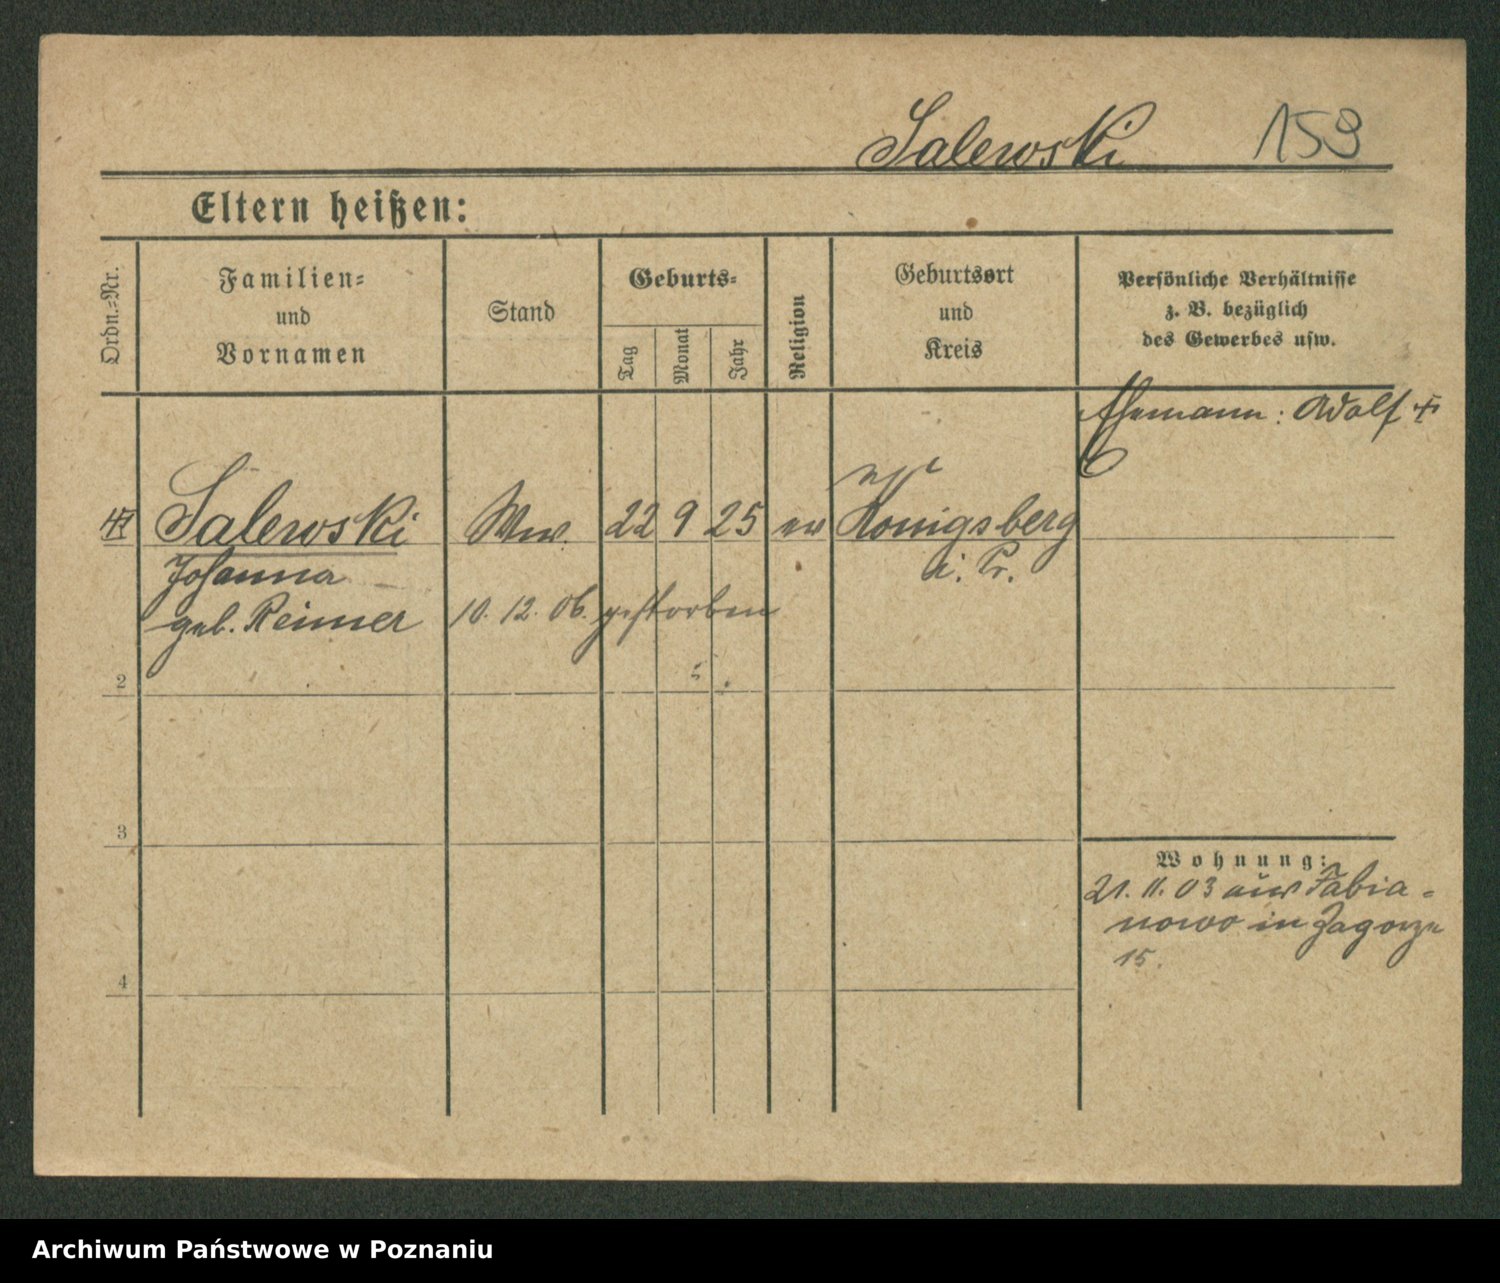 Salewski 159
Eltern heißen:
Ordn.-Nr.
Familien-
und
Vornamen
Stand
Geburts-
Tag
Monat
Jahr
Religion
Geburtsort
und
Kreis
Persönliche Verhältnisse
z. B. bezüglich
des Gewerbes usw.
Ehemann: Adolf +
Salewski Ww. 22 9 25 ev Königsberg
Johanna i. Pr.
geb. Reimer 10. 12. 06. gestorben
2
3
4
Wohnung:
21. 11. 03 aus Fabia-
nowo in Zagorze
15.
Archiwum Państwowe w Poznaniu